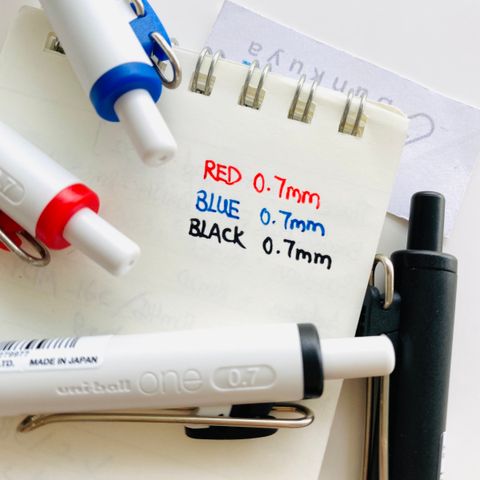 bunkuya
0.7
RED 0.7mm
BLUE 0.7mm
BLACK 0.7mm
LTD. MADE IN JAPAN
uni-ball one 0.7